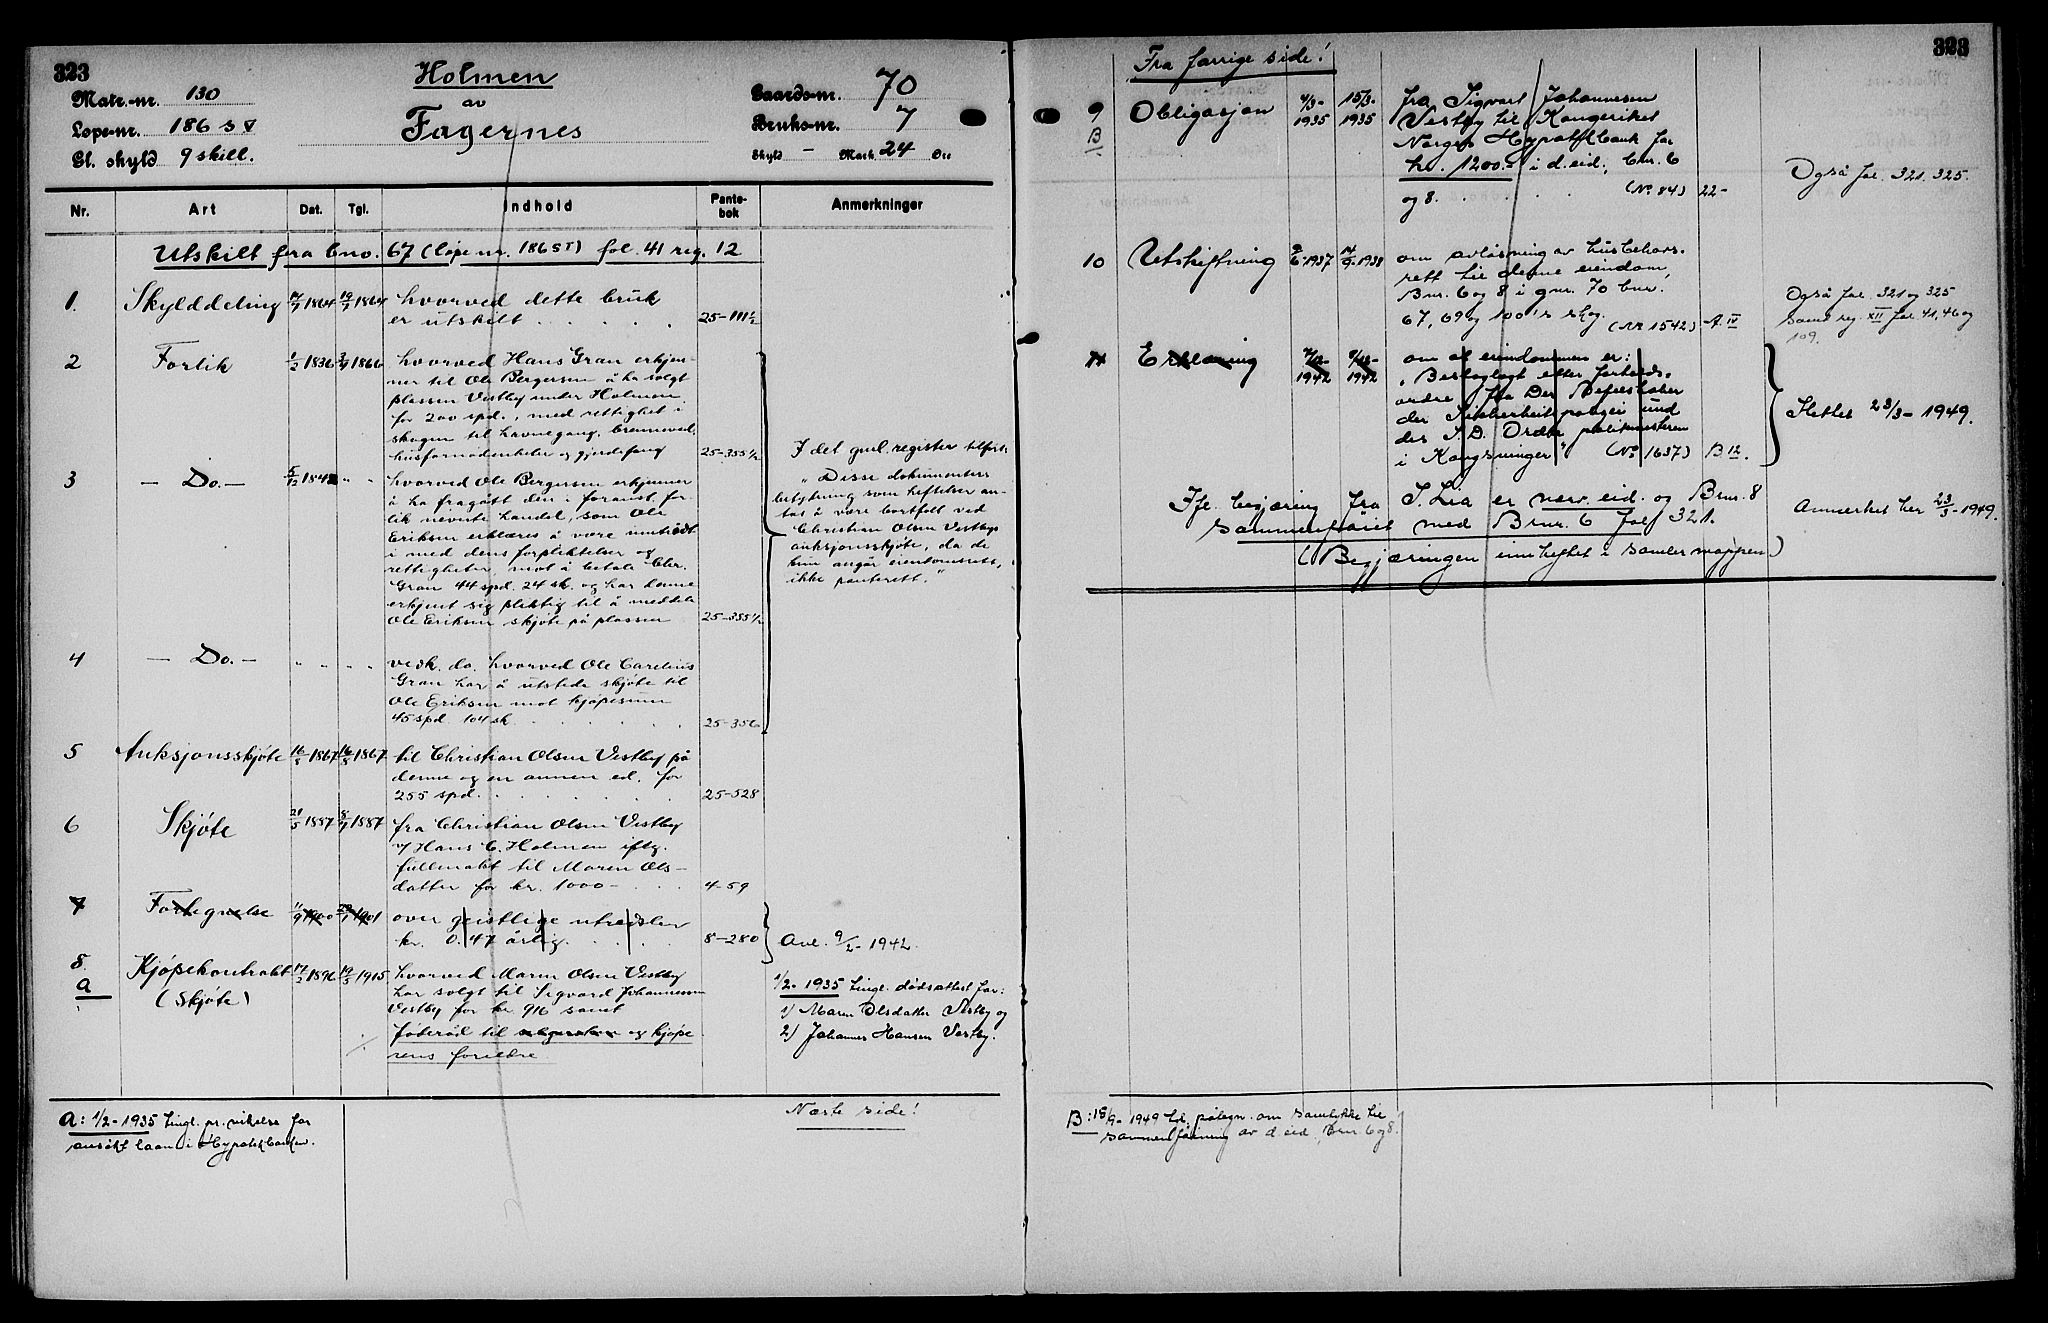 323
Holmen
av
Fagernes
Matr.-nr. 130
Løpe-nr. 186 s
Gl. skyld 9 skill.
Gaards-nr. 70
Bruks-nr. 7
Skyld - Mark 24 Øre
Nr. Art Dat. Tgl. Indhold Pante-bok Anmerkninger
Utskilt fra bno. 67 (løpenr. 186 s) fol. 41 reg. 12
1. Skylddeling 1864 1864 hvorved dette bruk
er utskilt . . . . . 25-111½
2 Forlik 1836 1866 hvorved Hans Gran erkjen-
ner til Ole Bergersen å ha solgt
plassen Vestby under Holmen
for 200 spd., med rettighet i
skogen til havnegang, brenneved,
husfornødenheter og gjerdefang 25-355½
3 - Do. - 5/12 1842 " " hvorved Ole Bergersen erkjenner
å ha fragått den i foranst. for-
lik nevnte handel, som Ole
Eriksen erklæres å være inntrådt
i med dens forpliktelser og
rettigheter, mot å betale Chr.
Gran 44 spd. 24 sk. og har denne
erkjent sig pliktig til å meddele
Ole Eriksen skjøte på plassen 25-355½
I det gml. register tilført:
"Disse dokumenters
betydning som heftelser an-
tas å være bortfalt ved
Christian Olsen Vestbys
auksjonsskjøte, da de
kun angår eiendomsrett,
ikke panterett."
4 - Do. - " " " " vesk. do. hvorved Ole Carelius
Gran har å utstede skjøte til
Ole Eriksen mot kjøpesum
45 spd. 104 sk. . . . . 25-356
5 Auksjonsskjøte 16/5 1867 16/5 1867 til Christian Olsen Vestby på
denne og en annen ed. for
255 spd. . . . . . 25-528
6 Skjøte 1887 1887 fra Christian Olsen Vestby
v/ Hans C. Holmen iflg.
fullmakt til Maren Ols-
datter for kr. 1000- . . . 4-59
7 Fortegnelse 11/9 1900 1901 over geistlige utreidsler
kr. 0.47 årlig. . . . 8-280 Avl. 9/2- 1942.
8. Kjøpekontrakt 1896 19/5 1915 hvorved Maren Olsen Vestby
a (Skjøte) har solgt til Sigvard Johannessen
Vestby for kr. 916 samt
føderåd til selgersken og kjøpe
rens foreldre.
1/2- 1935 tingl. dødsattest for:
1) Maren Olsdatter Vestby og
2) Johannes Hansen Vestby.
A: 1/2-1935 tingl. pr. vikelse for
ansøkt laan i Hypotekbanken.
Næste side!
323
Fra forrige side!
9 Obligasjon 4/3- 1935 15/3- 1935 fra Sigvart Johannesen
B Vestby til Kongeriket
Norges Hypotekbank for
kr. 1200.- i d. eid., bnr. 6
og 8. . . (No 84) 22-
Også fol. 321. 325.
10 Utskiftning 1937 14/9-1938 om avløsning av husbehovs-
rett til denne eiendom,
Bnr. 6 og 8 i gnr. 70 bnr.
67, 69 og 100's skog. (Nr 1542) A. IV
Også fol. 321 og 325
samt reg. XII fol 41, 46 og
109.
11 Erklæring 1942 1942 om at eiendommen er:
"Beslaglagt etter forholds-
ordre fra Der Befelshaber
der Sicherheitspolizei und
des S.D. Ordre politimesteren
i Kongsvinger" (No 1637) B 12.
Slettet 23/3- 1949.
Ifl. begjæring fra S. Lia er nærv. eid. og Bnr. 8
sammenføiet med Bnr. 6 fol 321.
(Begjæringen innheftet i samlermappen)
Anmerket her 23/3-1949.
B: 15/9- 1949 td. påtegn. om samtykke til
sammenføining av d. eid., Bnr 6 og 8.